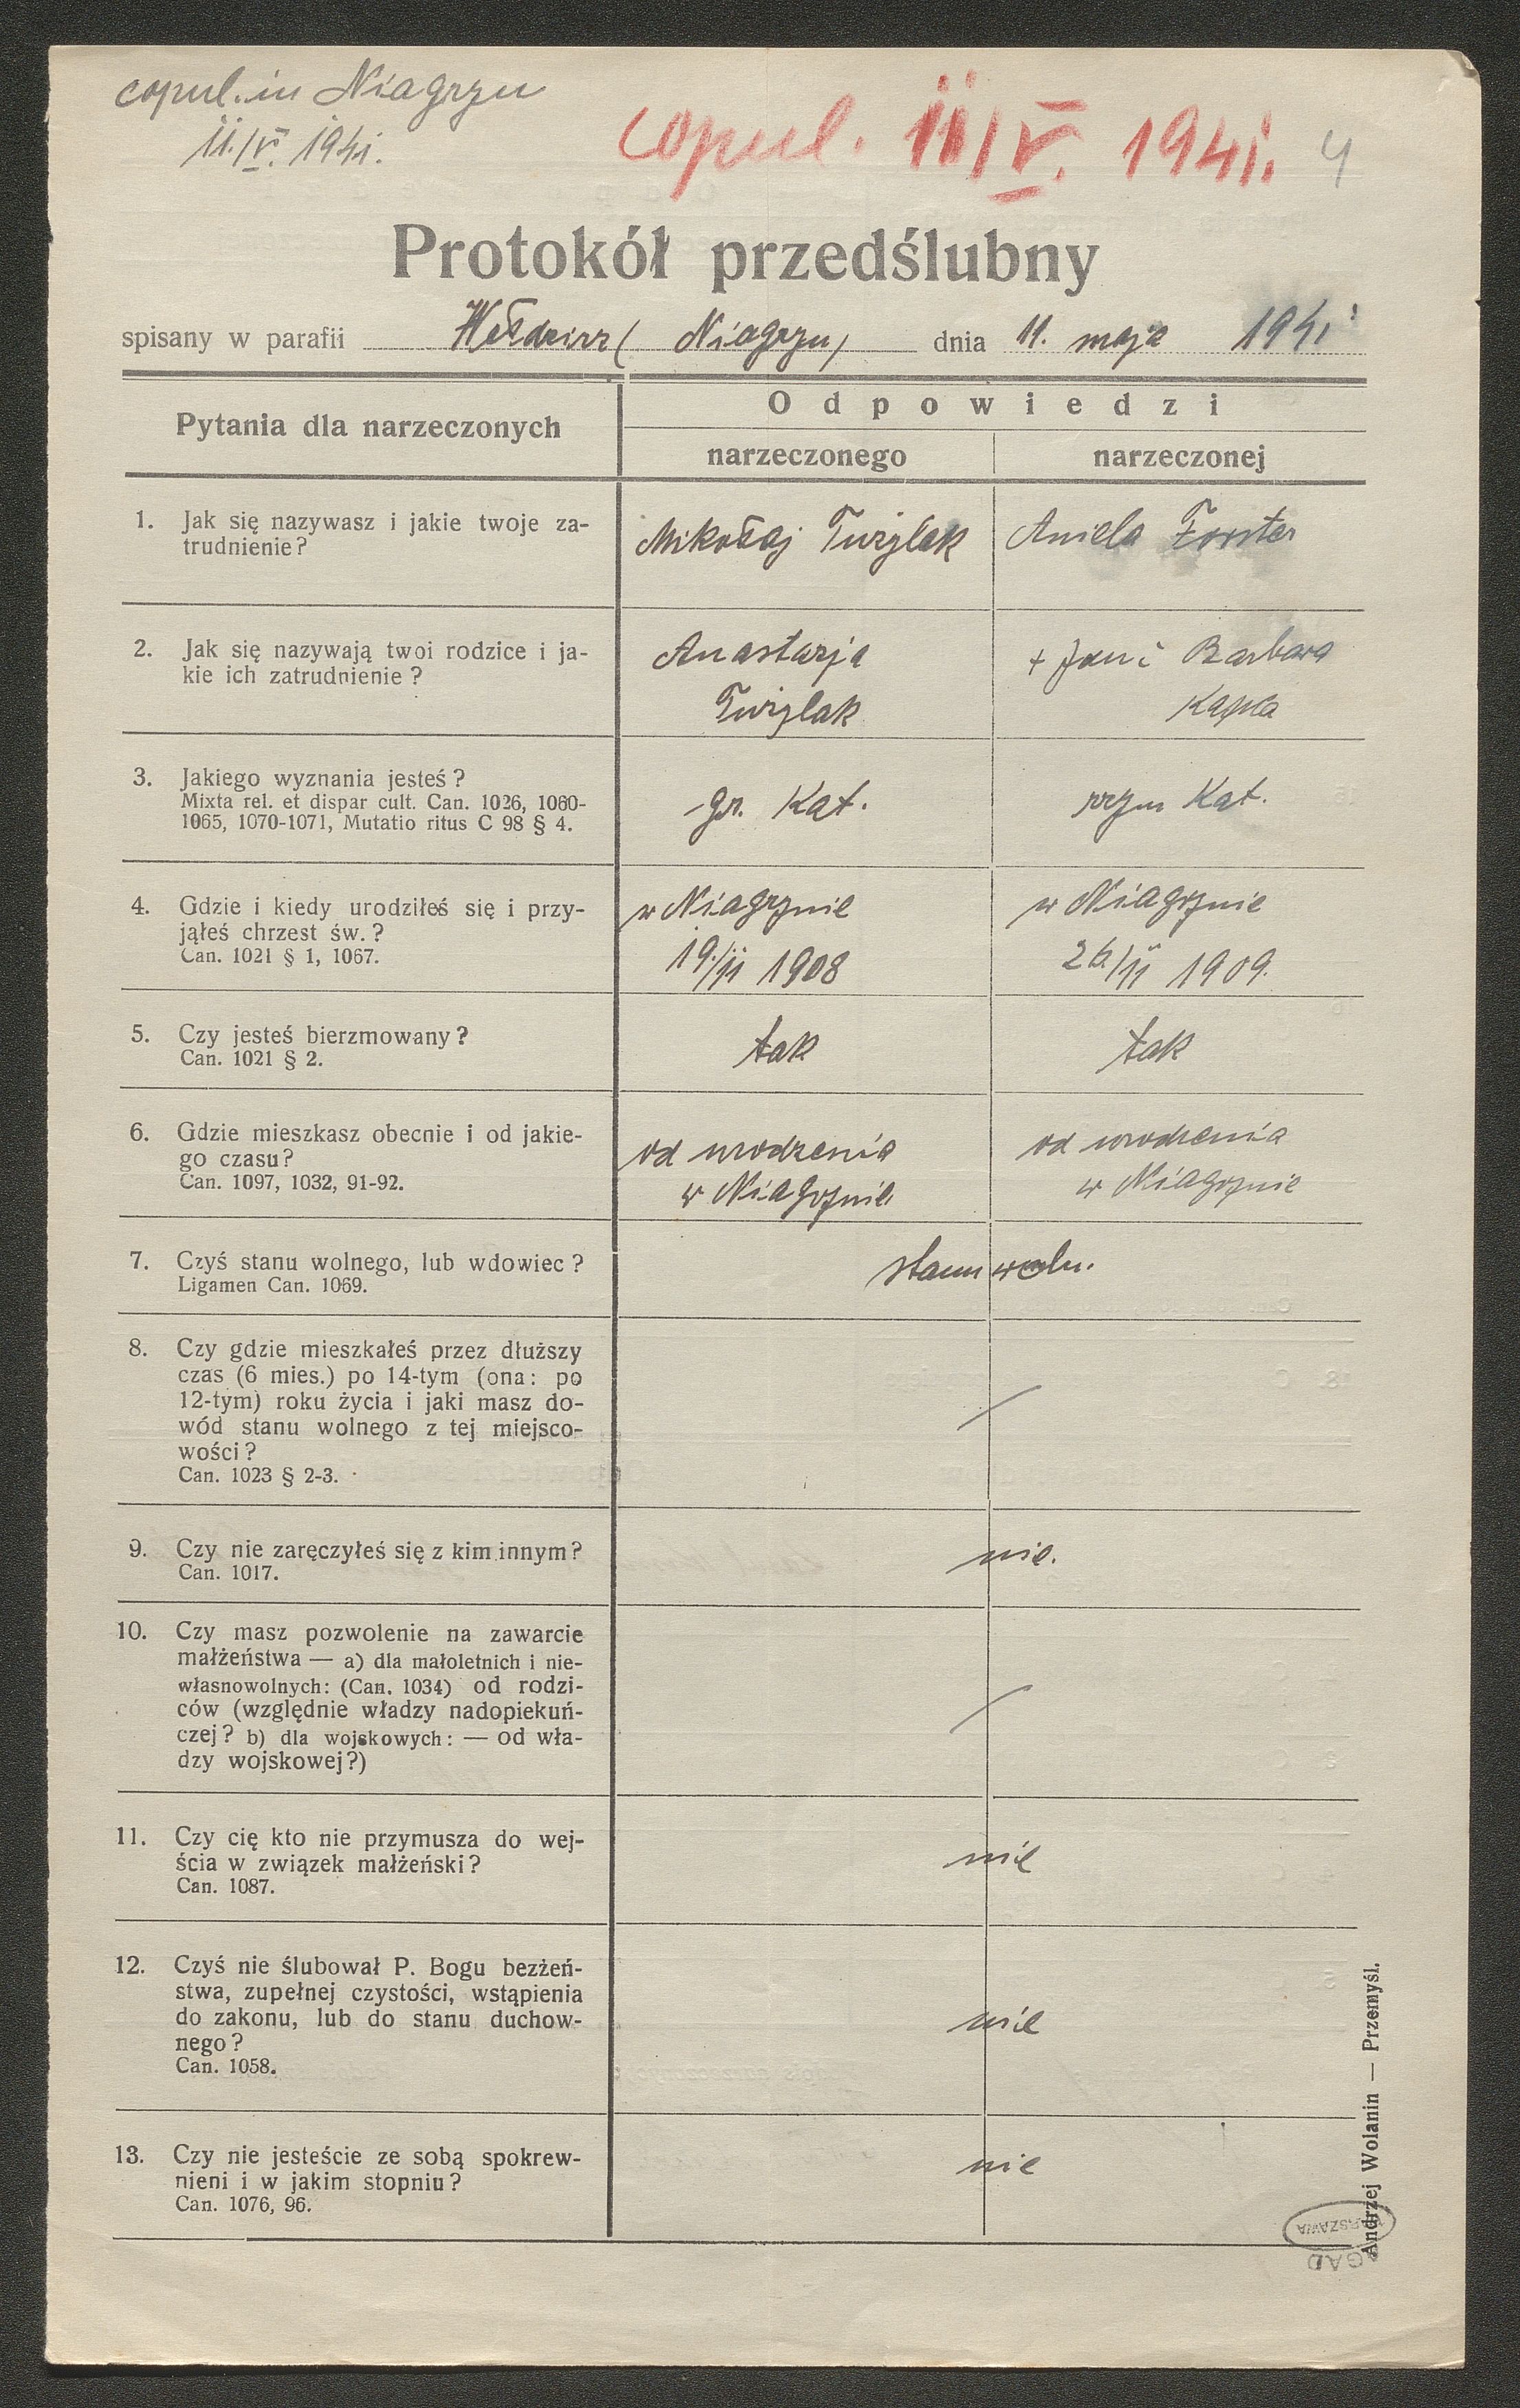 copul. in Niagryn
11./V. 1941.
copul. 11/V. 1941. 4
Protokół przedślubny
spisany w parafii Wełdzirz (Niagryn) dnia 11. maja 1941
Pytania dla narzeczonych
Odpowiedzi
narzeczonego narzeczonej
1. Jak się nazywasz i jakie twoje za-
trudnienie?
Mikołaj Aniela Forster
2. Jak się nazywają twoi rodzice i ja-
kie ich zatrudnienie?
Anastazja
+ Jan i Barbara
3. Jakiego wyznania jesteś?
Mixta rel. et dispar cult. Can. 1026, 1060-
1065, 1070-1071, Mutatio ritus C 98 § 4.
gr. Kat. rzym Kat.
4. Gdzie i kiedy urodziłeś się i przy-
jąłeś chrzest św.?
Can. 1021 § 1, 1067.
w Niagrynie w Niagrynie
19./11 1908 26/11 1909.
5. Czy jesteś bierzmowany?
Can. 1021 § 2.
tak tak
6. Gdzie mieszkasz obecnie i od jakie-
go czasu?
Can. 1097, 1032, 91-92.
od urodzenia od urodzenia
w Niagrynie w Niagrynie
7. Czyś stanu wolnego, lub wdowiec?
Ligamen Can. 1069.
stanu woln.
8. Czy gdzie mieszkałeś przez dłuższy
czas (6 mies.) po 14-tym (ona: po
12-tym) roku życia i jaki masz do-
wód stanu wolnego z tej miejsco-
wości?
Can. 1023 § 2-3.
9. Czy nie zaręczyłeś się z kim innym?
Can. 1017.
nie.
10. Czy masz pozwolenie na zawarcie
małżeństwa — a) dla małoletnich i nie-
własnowolnych: (Can. 1034) od rodzi-
ców (względnie władzy nadopiekuń-
czej? b) dla wojskowych: — od wła-
dzy wojskowej?)
11. Czy cię kto nie przymusza do wej-
ścia w związek małżeński?
Can. 1087.
nie
12. Czyś nie ślubował P. Bogu bezżeń-
stwa, zupełnej czystości, wstąpienia
do zakonu, lub do stanu duchow-
nego?
Can. 1058.
nie
13. Czy nie jesteście ze sobą spokrew-
nieni i w jakim stopniu?
Can. 1076, 96.
nie
Andrzej Wolanin — Przemyśl.
WARSZAWA
AGAD